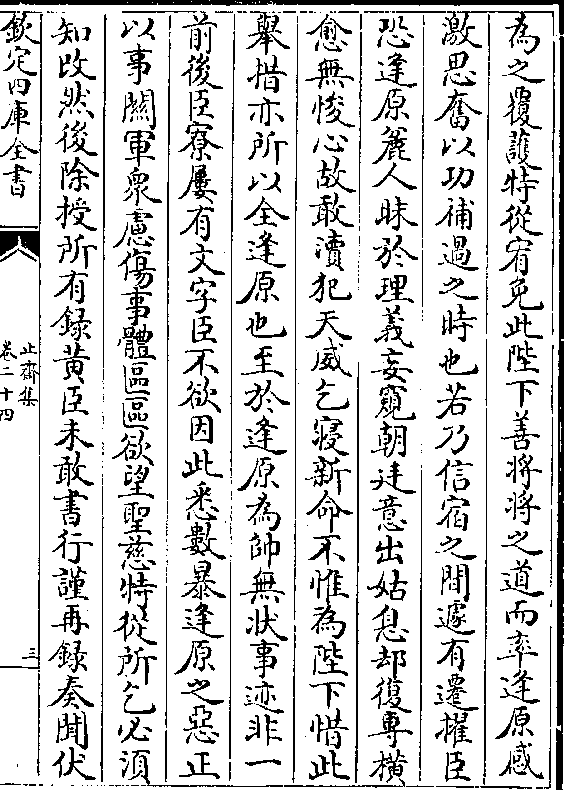 為之覆䕶特從宥免此陛下善將將之道而率逢原感
激思奮以功補過之時也若乃信宿之間遽有遷擢臣
恐逢原麄人昧於理義妄窺朝廷意出姑息却復専横
愈無悛心故敢瀆犯天威乞寢新命不惟為陛下惜此
舉措亦所以全逢原也至於逢原為帥無狀事迹非一
前後臣寮屢有文字臣不欲因此悉數暴逢原之惡正
以事闗軍衆慮傷事體區區欲望聖慈特從所乞必須
知改然後除授所有録黄臣未敢書行謹再録奏聞伏
欽定四庫全書
止齋集
卷二十四
三